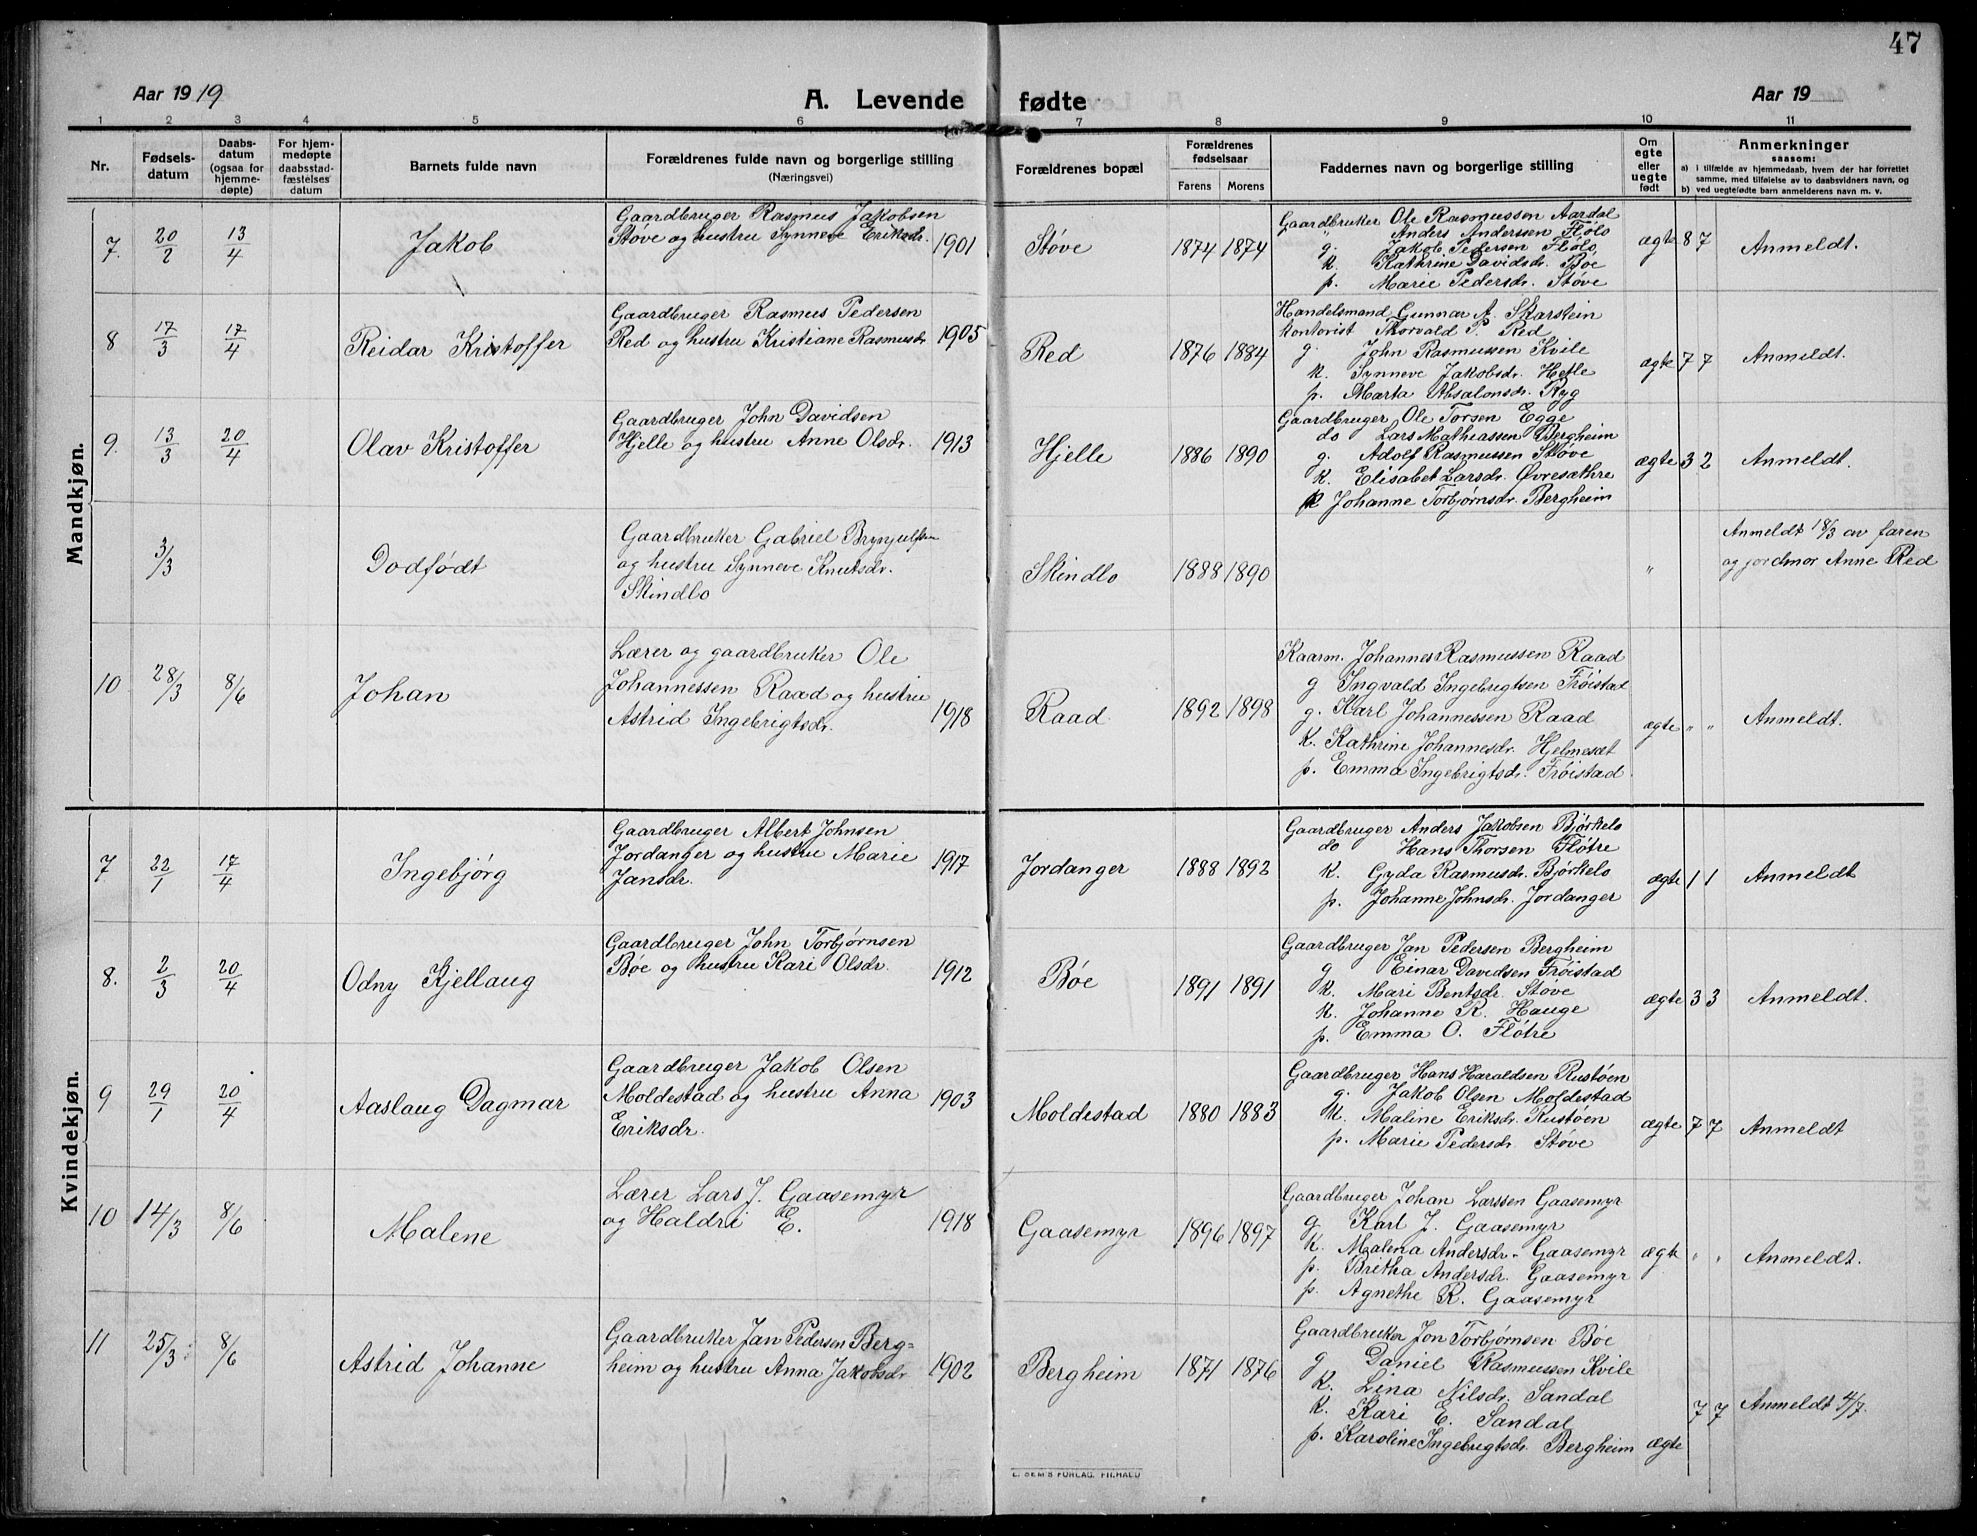 47
Aar 1919
A. Levende fødte
Aar 19
1 2 3 4 5 6 7 8 9 10 11
Nr.
Fødsels-
datum
Daabs-
datum
(ogsaa for
hjemme-
døpte)
For hjem-
medøpte
daabsstad-
fæstelses
datum
Barnets fulde navn
Forældrenes fulde navn og borgerlige stilling
(Næringsvei)
Forældrenes bopæl
Forældrenes
fødselsaar
Farens Morens
Faddernes navn og borgerlige stilling
Om
egte
eller
uegte
født
Anmerkninger
saasom:
a) i tilfælde av hjemmedaab, hvem der har forrettet
samme, med tilføielse av to daabsvidners navn, og
b) ved uegtefødte barn anmelderens navn m. v.
Mandkjøn.
7. 20/2 13/4 Jakob
Gaardbruger Rasmus Jakobsen
Støve og hustru Synneve Eriksdr. 1901
Støve 1874 1874
Gaardbruker Ole Rasmussen Aardal
" Anders Andersen Flölo
g. Jakob Pedersen Flölo
k. Kathrine Davidsdr. Bøe
p. Marie Pedersdr. Støve
ægte 8 7 Anmeldt.
8 17/3 17/4 Reidar Kristoffer
Gaardbruger Rasmus Pedersen
Red og hustru Kristiane Rasmusdr 1905
Red 1876 1884
Handelsmand Gunnar A. Skarstein
Kontorist Thorvald P. Red
g. John Rasmussen Kvile
k. Synneve Jakobsdr. Hefle
p. Marta Absalonsdr. Ryg
ægte 7 7 Anmeldt.
9. 13/3 20/4 Olav Kristoffer
Gaardbruger John Davidsen
Hjelle og hustru Anne Olsdr. 1913
Hjelle 1886 1890
Gaardbruger Ole Torsen Egge
do Lars Mathiassen Bergheim
g. Adolf Rasmussen Støve
k. Elisabet Larsdr. Øvresæthre
k Johanne Torbjørnsdr. Bergheim
ægte 3 2 Anmeldt.
3/3 Dodfødt
Gaardbruker Gabriel Brynjulfsen
og hustru Synneve Knutsdr.
Skindlo
Skindlo 1888 1890
"
Anmeldt 18/3 av faren
og jordmor Anne Red
10 28/3 8/6 Johan
Lærer og gaardbruker Ole
Johannessen Raad og hustru
Astrid Ingebrigtsdr. 1918
Raad 1892 1898
Kaarm. Johannes Rasmussen Raad
g Ingvald Ingebrigtsen Frøistad
g. Karl Johannessen Raad
k. Kathrine Johannesdr. Hjelmesæt
p. Emma Ingebrigtsdr. Frøistad
ægte " " Anmeldt.
Kvindekjøn.
7. 22/1 17/4 Ingebjørg
Gaardbruger Albert Johnsen
Jordanger og hustru Marie
Jansdr. 1917
Jordanger 1888 1892
Gaardbruger Anders Jakobsen Bjørkelo
do Hans Thorsen Fløtre
k. Gyda Rasmusdr. Bjørkelo
p. Johanne Johnsdr. Jordanger
ægte 1 1 Anmeldt
8. 2/3 20/4 Odny Kjellaug
Gaardbruger John Torbjørnsen
Bøe og hustru Kari Olsdr. 1912
Bøe 1891 1891
Gaardbruger Jan Pedersen Bergheim
g Einar Davidsen Frøistad
k. Mari Bentsdr. Støve
k. Johanne R. Hauge
p. Emma O. Fløtre
ægte 3 3 Anmeldt.
9 29/1 20/4 Aaslaug Dagmar
Gaardbruger Jakob Olsen
Moldestad og hustru Anna
Eriksdr. 1903
Moldestad 1880 1883
Gaardbruger Hans Haraldsen Rustøen
g. Jakob Olsen Moldestad
k. Maline Eriksdr. Rustøen
p. Marie Pedersdr Støve
ægte 7 7 Anmeldt
10 14/3 8/6 Malene
Lærer Lars J. Gaasemyr
og Haldri E. 1918
Gaasemyr 1896 1897
Gaardbruger Johan Larssen Gaasemyr
g Karl J. Gaasemyr
k. Malena Andersdr. Gaasemyr
p. Britha Andersdr. Gaasemyr
p. Agnethe R. Gaasemyr
ægte " " Anmeldt.
11 25/3 8/6 Astrid Johanne
Gaardbruker Jan Pedersen Berg=
heim og hustru Anna Jakobsdr 1902
Bergheim 1871 1876
Gaardbruker Jon Torbjørnsen Bøe
g Daniel Rasmussen Kvile
k. Lina Nilsdr. Sandal
k. Kari E. Sandal
p. Karoline Ingebrigtsdr. Bergheim
ægte 7 7 Anmeldt 4/7.
E. SEM'S FORLAG, FR.HALD